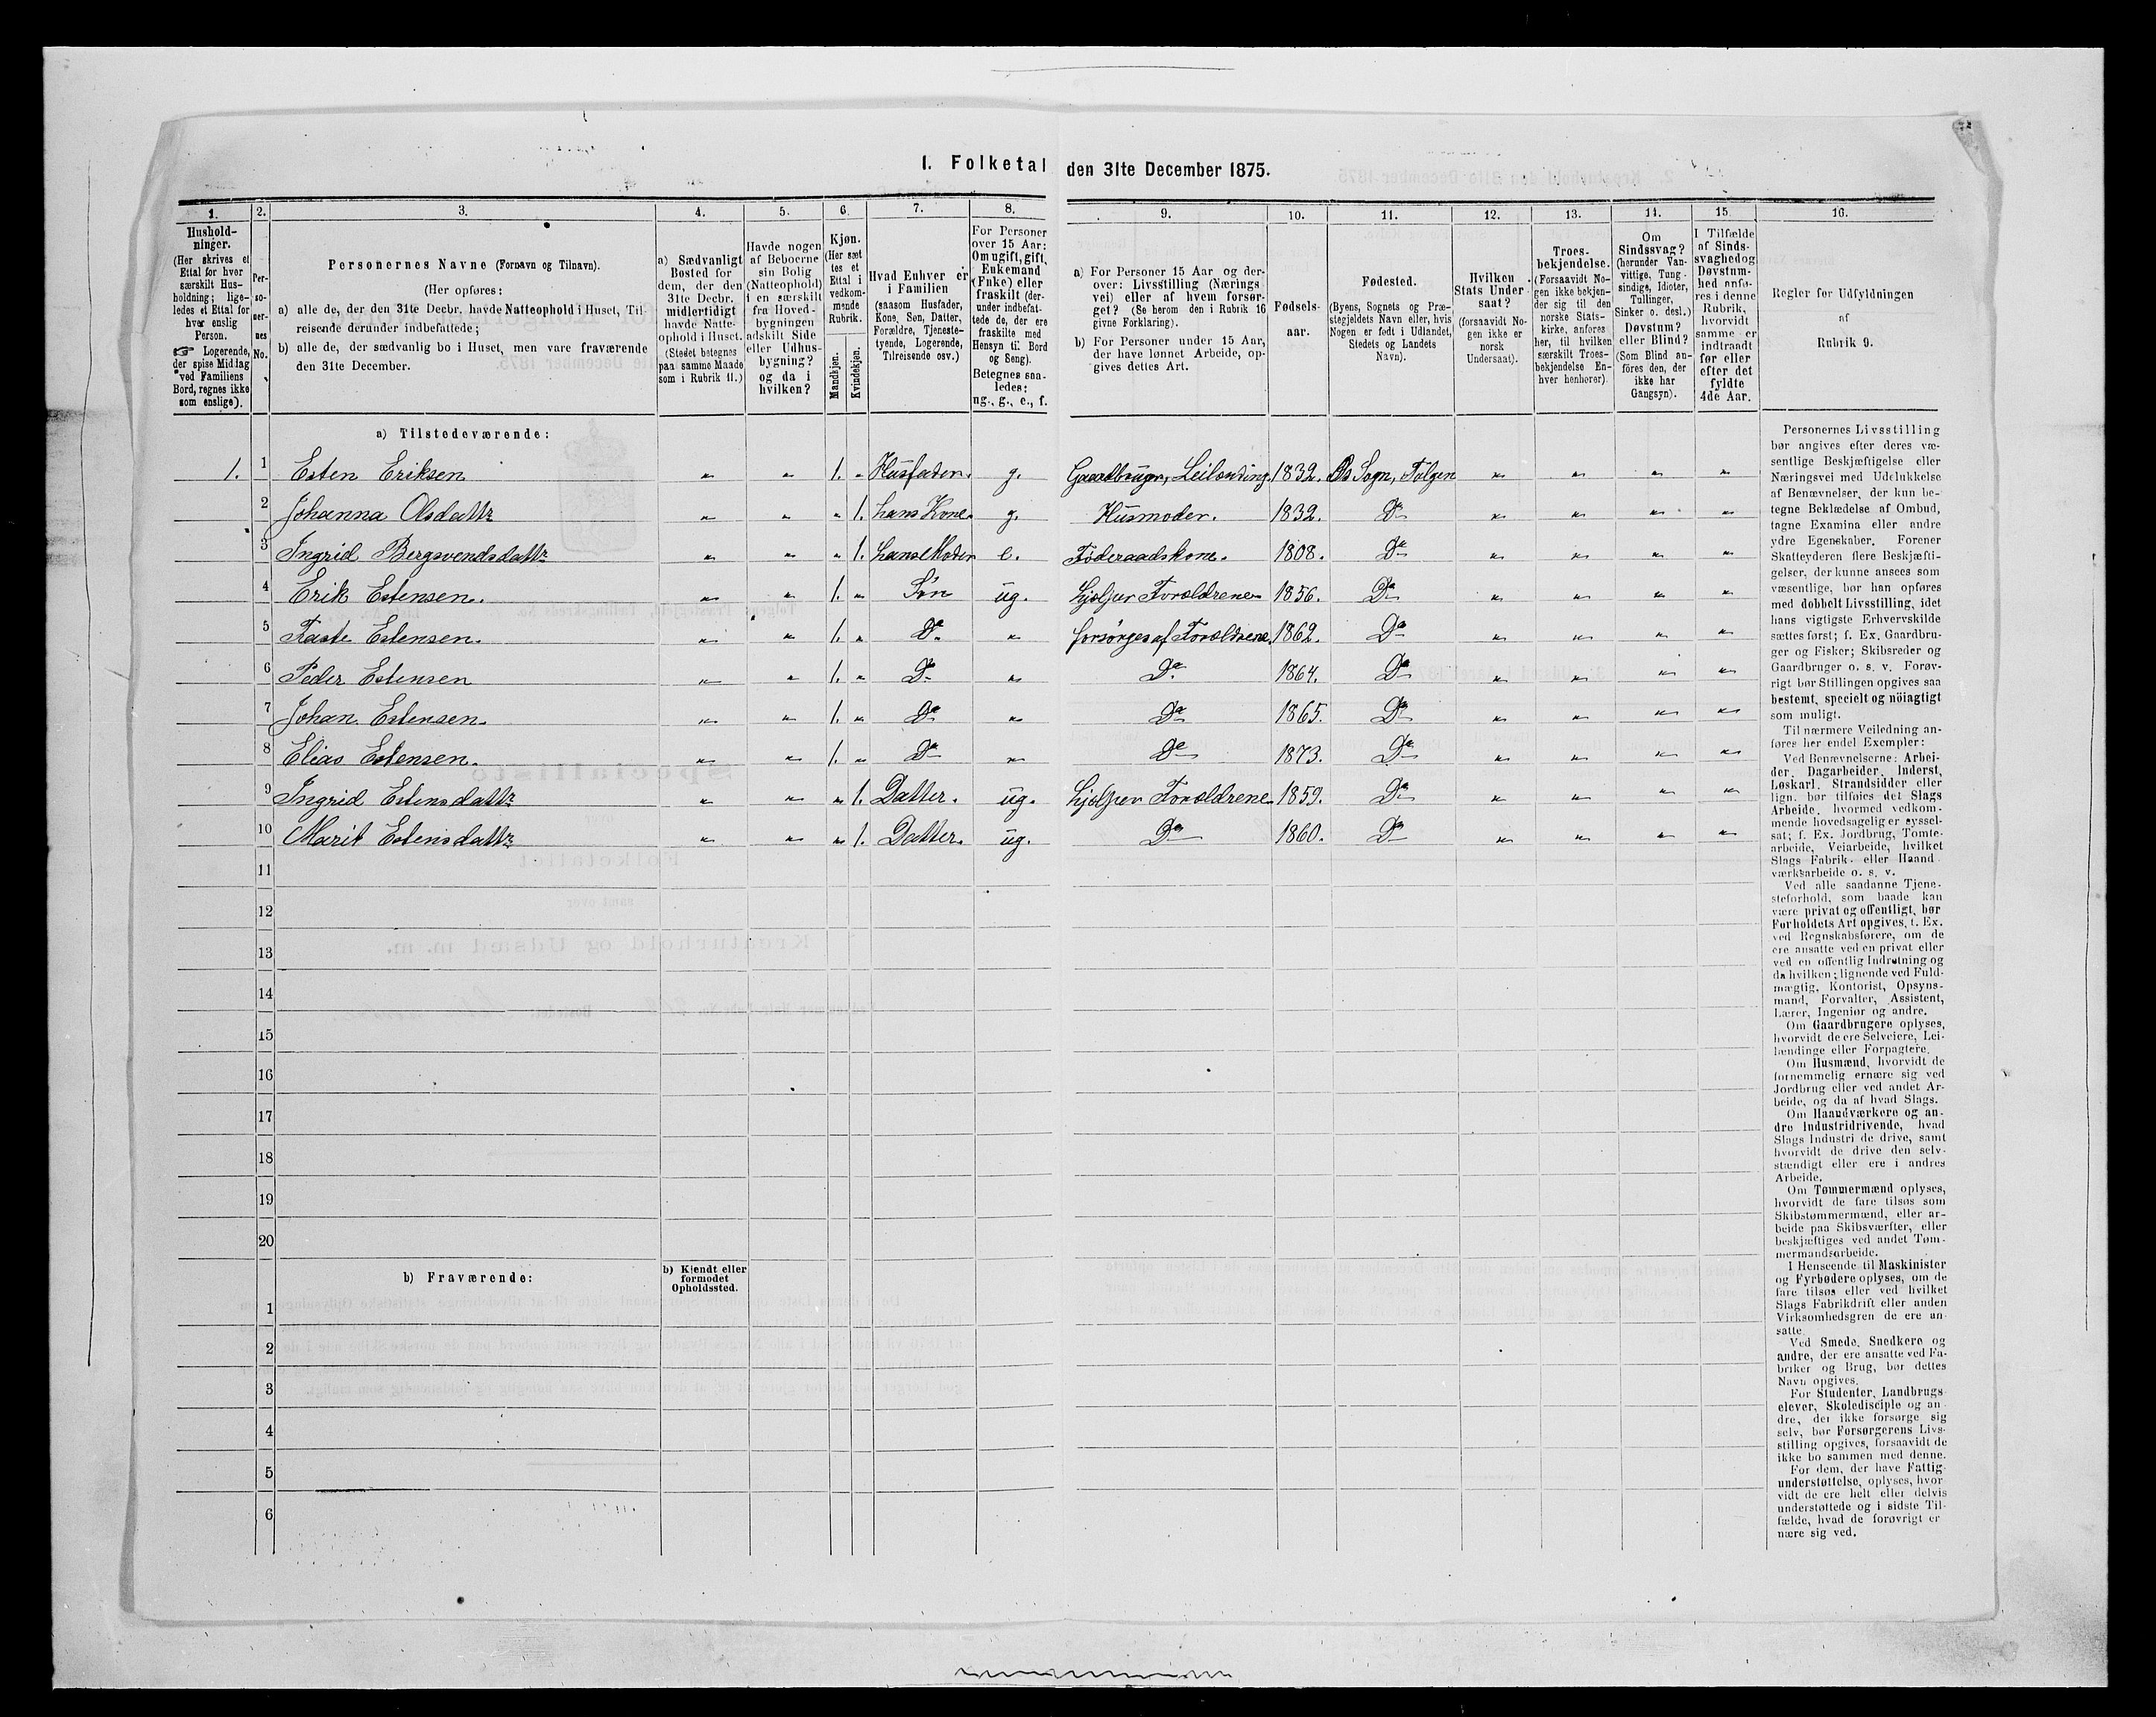 I. Folketal den 31te December 1875.
1. 2. 3. 4. 5. 6. 7. 8. 9. 10. 11. 12. 13. 14. 15. 16.
Hushold-
ninger.
(Her skrives et
Ettal for hver
særskilt Hus-
holdning; lige-
ledes et Ettal for
hver enslig
Person.
☞ Logerende,
der spise Middag
ved Familiens
Bord, regnes ikke
som enslige).
Per-
so-
ner-
nes
No.
Personernes Navne (Fornavn og Tilnavn).
(Her opføres:
a) alle de, der den 31te Decbr. havde Natteophold i Huset, Til-
reisende derunder indbefattede;
b) alle de, der sædvanlig bo i Huset, men vare fraværende
den 31te December.
a) Sædvanligt
Bosted for
dem, der den
31te Decbr.
midlertidigt
havde Natte-
ophold i Huset.
(Stedet betegnes
paa samme Maade
som i Rubrik 11.)
Havde nogen
af Beboerne
sin Bolig
(Natteophold)
i en særskilt
fra Hoved-
bygningen
adskilt Side
eller Udhus-
bygning?
og da i
hvilken?
Kjøn.
(Her sæt
tes et
Ettal i
vedkom-
mende
Rubrik.
Mandkjøn.
Kvindekjøn.
Hvad Enhver er
i Familien
(saasom Husfader,
Kone, Søn, Datter,
Forældre, Tjeneste-
tyende, Logerende,
Tilreisende osv.)
For Personer
over 15 Aar:
Om ugift, gift,
Enkemand
(Enke) eller
fraskilt (der-
under indbefat-
tede de, der ere
fraskilte med
Hensyn til Bord
og Seng).
Betegnes saa-
ledes:
ug., g., e., f.
a) For Personer 15 Aar og der-
over: Livsstilling (Nærings
vei) eller af hvem forsør-
get? (Se herom den i Rubrik 16
givne Forklaring).
b) For Personer under 15 Aar,
der have lønnet Arbeide, op-
gives dettes Art.
Fødsels-
aar.
Fødested.
(Byens, Sognets og Præ-
stegjeldets Navn eller, hvis
Nogen er født i Udlandet,
Stedets og Landets
Navn).
Hvilken
Stats Under
saat?
(forsaavidt No-
gen ikke er
norsk
Undersaat).
Troes-
bekjendelse.
(Forsaavidt No-
gen ikke bekjen-
der sig til den
norske Stats-
kirke, anføres
her, til hvilken
særskilt Troes-
bekjendelse En-
hver henhører).
Om
Sindssvag?
(herunder Van-
vittige, Tung-
sindige, Idioter,
Tullinger,
Sinker o. desl.)
Døvstum?
eller Blind?
(Som Blind an-
föres den, der
ikke har
Gangsyn).
I Tilfælde
af Sinds-
svaghed og
Døvstum-
hed anfø-
res i denne
Rubrik,
hvorvidt
samme er
indtraadt
før eller
efter det
fyldte
4de Aar.
Regler for Udfyldningen
af
Rubrik 9.
a) Tilstedeværende:
1. 1 Esten Eriksen " " 1. " Husfader. g. Gaardbruger, Leilending. 1832. Os Sogn, Tolgen " " " "
2 Johanna Olsdattr " " " 1. hans Kone. g. Husmoder. 1832. Do " " " "
3 Ingrid Bergsvendsdattr " " " 1. hans Moder e. Føderaadskone. 1808. Do " " " "
4 Erik Estensen. " " 1. " Søn ug. hjælper Forældrene 1856. Do " " " "
5 Faste Estensen. " " 1. " Do " forsørges af Forældrene. 1862. Do " " " "
6 Peder Estensen " " 1. " Do " Do 1864. Do " " " "
7 Johan Estensen. " " 1. " Do " Do 1865. Do " " " "
8 Elias Estensen. " " 1. " Do " Do 1873. Do " " " "
9 Ingrid Estensdattr " " " 1. Datter. ug. hjælper Forældrene. 1859. Do " " " "
10 Marit Estensdattr " " " 1. Datter. ug. Do 1860. Do " " " "
11
12
13
14
15
16
17
18
19
20
b) Fraværende:
b) Kjendt eller
formodet
Opholdssted.
1
2
3
4
5
6
Personernes Livsstilling
bør angives efter deres væ-
sentlige Beskjæftigelse eller
Næringsvei med Udelukkelse
af Benævnelser, der kun be-
tegne Beklædelse af Ombud,
tagne Examina eller andre
ydre Egenskaber. Forener
Skatteyderen flere Beskjæfti-
gelser, der kunne ansees som
væsentlige, bør han opføres
med dobbelt Livsstilling, idet
hans vigtigste Erhvervskilde
sættes først; f. Ex. Gaardbru-
ger og Fisker; Skibsreder og
Gaardbruger o. s. v. Forøv-
rigt bør Stillingen opgives saa
bestemt, specielt og nöiagtigt
som muligt.
Til nærmere Veiledning an-
føres her endel Exempler:
Ved Benævnelserne: Arbei-
der, Dagarbeider, Inderst,
Løskarl, Strandsidder eller
lign. bør tilføies det Slags
Arbeide, hvormed vedkom-
mende hovedsagelig er syssel-
sat; f. Ex. Jordbrug, Tomte-
arbeide, Veiarbeide, hvilket
Slags Fabrik- eller Haand-
værksarbeide o. s. v.
Ved alle saadanne Tjene-
steforhold, som baade kan
være privat og offentligt, bør
Forholdets Art opgives, f. Ex.
ved Regnskabsførere, om de
ere ansatte ved en privat eller
ved en offentlig Indretning og
da hvilken; lignende ved Fuld-
mægtig, Kontorist, Opsyns-
mand, Forvalter, Assistent,
Lærer, Ingeniør og andre.
Om Gaardbrugere oplyses,
hvorvidt de ere Selveiere, Lei-
lændinge eller Forpagtere.
Om Husmænd, hvorvidt de
fornemmelig ernære sig ved
Jordbrug eller ved andet Ar-
beide, og da af hvad Slags.
Om Haandværkere og an-
dre Industridrivende, hvad
Slags Industri de drive, samt
hvorvidt de drive den selv-
stændigt eller ere i andres
Arbeide.
Om Tømmermænd oplyses,
hvorvidt de fare tilsøs som
Skibstømmermænd, eller ar-
beide paa Skibsværfter, eller
beskjæftiges ved andet Tøm-
mermandsarbeide.
I Henseende til Maskinister
og Fyrbødere oplyses, om de
fare tilsøs eller ved hvilket
Slags Fabrikdrift eller anden
Virksomhedsgren de ere an-
satte.
Ved Smede, Snedkere og
andre, der ere ansatte ved Fa-
briker og Brug, bør dettes
Navn opgives.
For Studenter, Landbrugs
elever, Skoledisciple og an-
dre, der ikke forsørge sig
selv, bør Forsørgerens Livs-
stilling opgives, forsaavidt de
ikke bo sammen med denne.
For dem, der have Fattig-
understøttelse, oplyses, hvor-
vidt de ere helt eller delvis
understøttede og i sidste Til-
fælde, hvad de forøvrigt er-
nære sig ved.